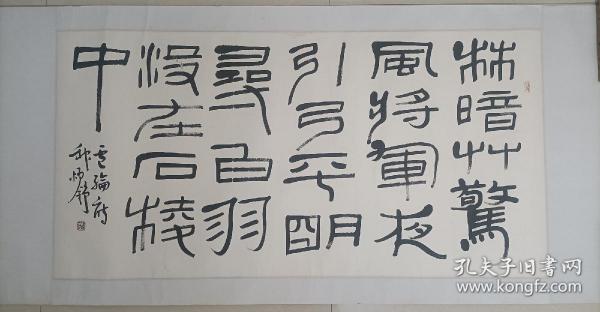 林暗艸驚
風將軍夜
引弓平明
尋白羽
没在石棱
中
盧綸詩
孔夫子旧书网
www.kongfz.com